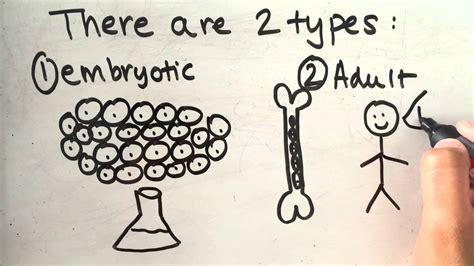 There are 2 types:
1 embryotic
2 Adult